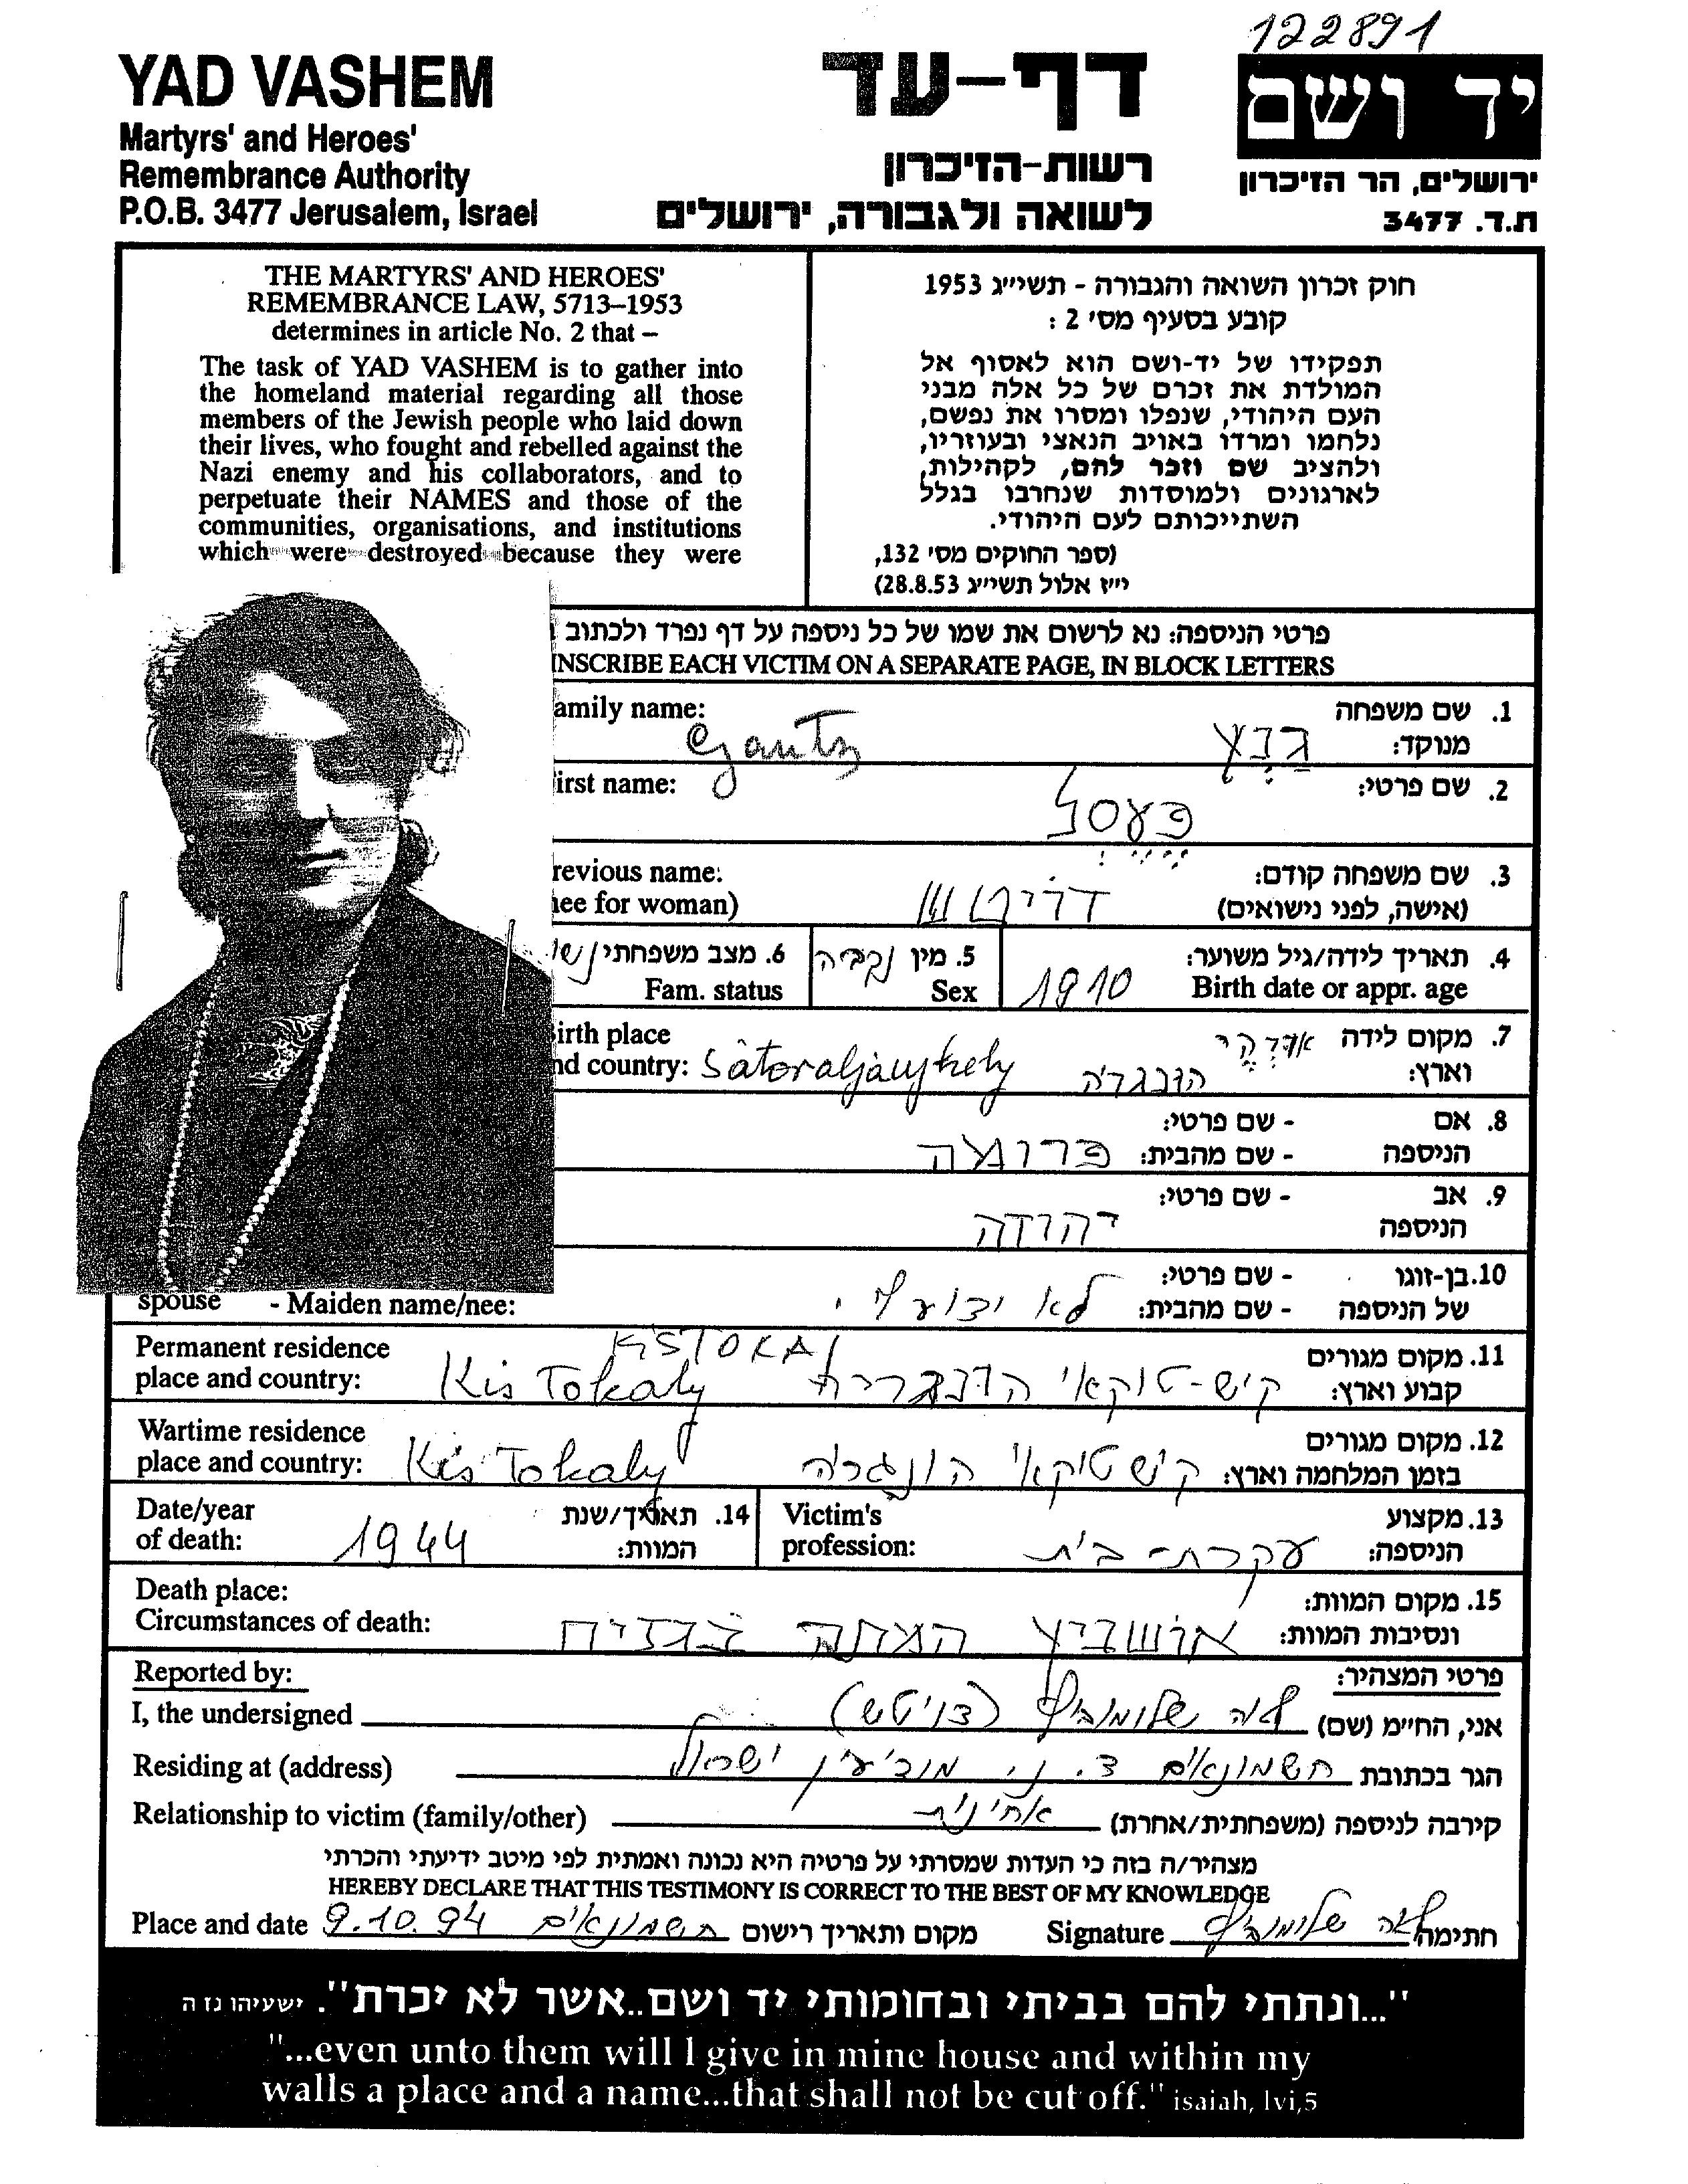 122891
YAD VASHEM
Martyrs' and Heroes'
Remembrance Authority
P.O.B. 3477 Jerusalem, Israel
דף-עד
רשות-הזיכרון
לשואה ולגבורה, ירושלים
יד ושם
ירושלים, הר הזיכרון
ת.ד. 3477
THE MARTYRS' AND HEROES'
REMEMBRANCE LAW, 5713–1953
determines in article No. 2 that –
The task of YAD VASHEM is to gather into
the homeland material regarding all those
members of the Jewish people who laid down
their lives, who fought and rebelled against the
Nazi enemy and his collaborators, and to
perpetuate their NAMES and those of the
communities, organisations, and institutions
which were destroyed because they were
חוק זכרון השואה והגבורה - תשי״ג 1953
קובע בסעיף מס׳ 2 :
תפקידו של יד-ושם הוא לאסוף אל
המולדת את זכרם של כל אלה מבני
העם היהודי, שנפלו ומסרו את נפשם,
נלחמו ומרדו באויב הנאצי ובעוזריו,
ולהציב שם וזכר להם, לקהילות,
לארגונים ולמוסדות שנחרבו בגלל
השתייכותם לעם היהודי.
(ספר החוקים מס׳ 132,
י״ז אלול תשי״ג 28.8.53)
פרטי הניספה: נא לרשום את שמו של כל ניספה על דף נפרד ולכתוב
INSCRIBE EACH VICTIM ON A SEPARATE PAGE, IN BLOCK LETTERS
amily name: Gantz גנץ 1. שם משפחה
מנוקד:
irst name: פעסל 2. שם פרטי:
revious name:
nee for woman) 3. שם משפחה קודם:
(אישה, לפני נישואים)
6. מצב משפחתי נשו
Fam. status
5. מין נקבה
Sex
4. תאריך לידה/גיל משוער:
Birth date or appr. age 1910
irth place
nd country: Sátoraljaújhely הונגריה 7. מקום לידה
וארץ:
8. אם הניספה - שם פרטי:
- שם מהבית: פרומה
9. אב הניספה - שם פרטי:
יהודה
10. בן-זוגו של הניספה - שם פרטי:
- שם מהבית: לא ידוע
spouse - Maiden name/nee:
Permanent residence KISTOKAJ
place and country: Kis Tokaly קיש-טוקאי הונגריה 11. מקום מגורים
קבוע וארץ:
Wartime residence
place and country: Kis Tokaly קישטוקאי הונגריה 12. מקום מגורים
בזמן המלחמה וארץ:
Date/year
of death: 1944 14. תאריך/שנת
המוות:
Victim's
profession: עקרת-בית 13. מקצוע
הניספה:
Death place:
Circumstances of death: אושביץ המתה בגזים 15. מקום המוות:
ונסיבות המוות:
Reported by: פרטי המצהיר:
I, the undersigned לאה שלומוביץ אני, החי״מ (שם)
Residing at (address) חשמונאים ד. נ. מודיעין ישראל הגר בכתובת
Relationship to victim (family/other) אחינית קירבה לניספה (משפחתית/אחרת)
מצהיר/ה בזה כי העדות שמסרתי על פרטיה היא נכונה ואמתית לפי מיטב ידיעתי והכרתי
HEREBY DECLARE THAT THIS TESTIMONY IS CORRECT TO THE BEST OF MY KNOWLEDGE
Place and date 9.10.94 חשמונאים מקום ותאריך רישום Signature לאה שלומוביץ חתימה
"...ונתתי להם בביתי ובחומותי יד ושם..אשר לא יכרת". ישעיהו נז ה
"...even unto them will I give in mine house and within my
walls a place and a name...that shall not be cut off." isaiah, lvi,5